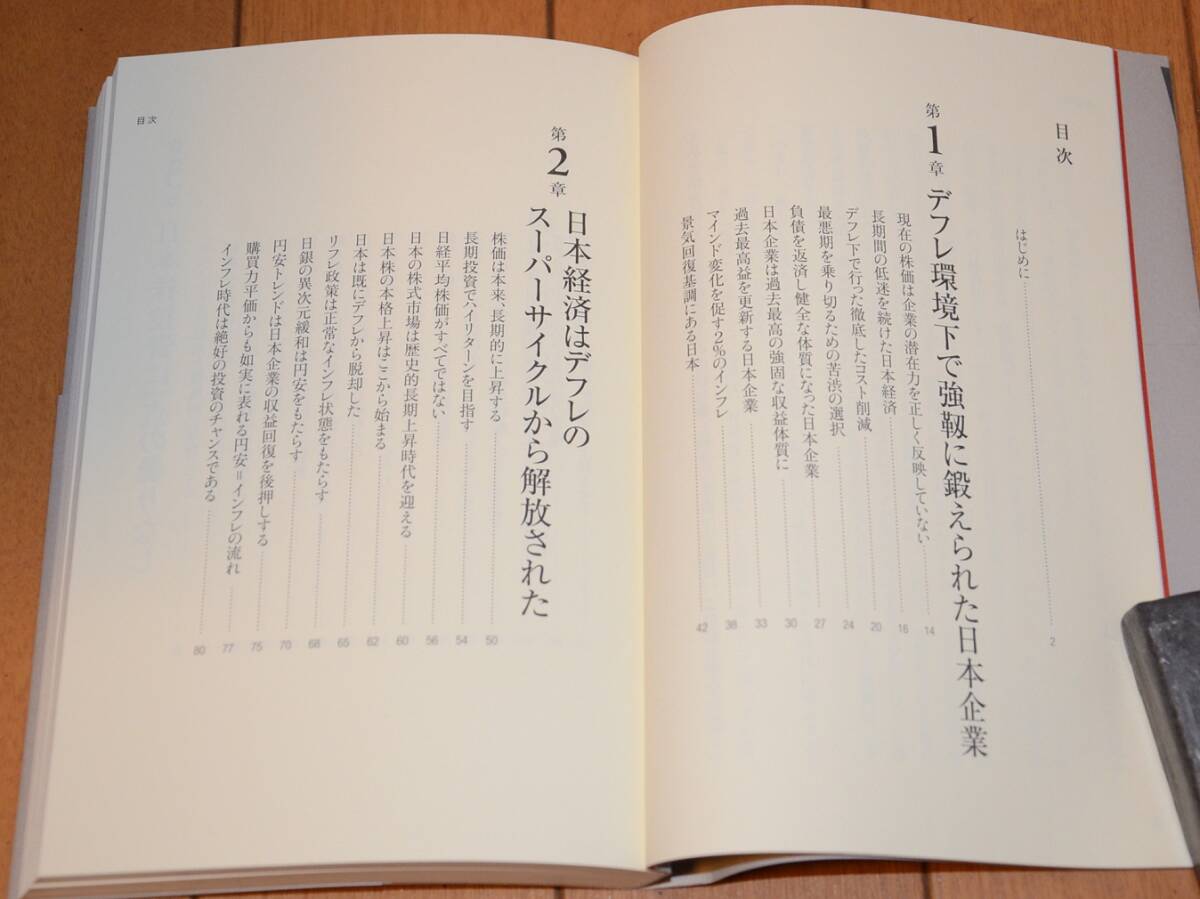 目次
はじめに 2
第1章 デフレ環境下で強靱に鍛えられた日本企業
現在の株価は企業の潜在力を正しく反映していない 14
長期間の低迷を続けた日本経済 16
デフレ下で行った徹底したコスト削減 20
最悪期を乗り切るための苦渋の選択 24
負債を返済し健全な体質になった日本企業 27
日本企業は過去最高の強固な収益体質に 30
過去最高益を更新する日本企業 33
マインド変化を促す2%のインフレ 38
景気回復基調にある日本 42
第2章 日本経済はデフレの
スーパーサイクルから解放された
株価は本来、長期的に上昇する 50
長期投資でハイリターンを目指す 54
日経平均株価がすべてではない 56
日本の株式市場は歴史的長期上昇時代を迎える 60
日本株の本格上昇はここから始まる 62
日本は既にデフレから脱却した 65
リフレ政策は正常なインフレ状態をもたらす 68
日銀の異次元緩和は円安をもたらす 70
円安トレンドは日本企業の収益回復を後押しする 75
購買力平価からも如実に表れる円安=インフレの流れ 77
インフレ時代は絶好の投資のチャンスである 80
目次